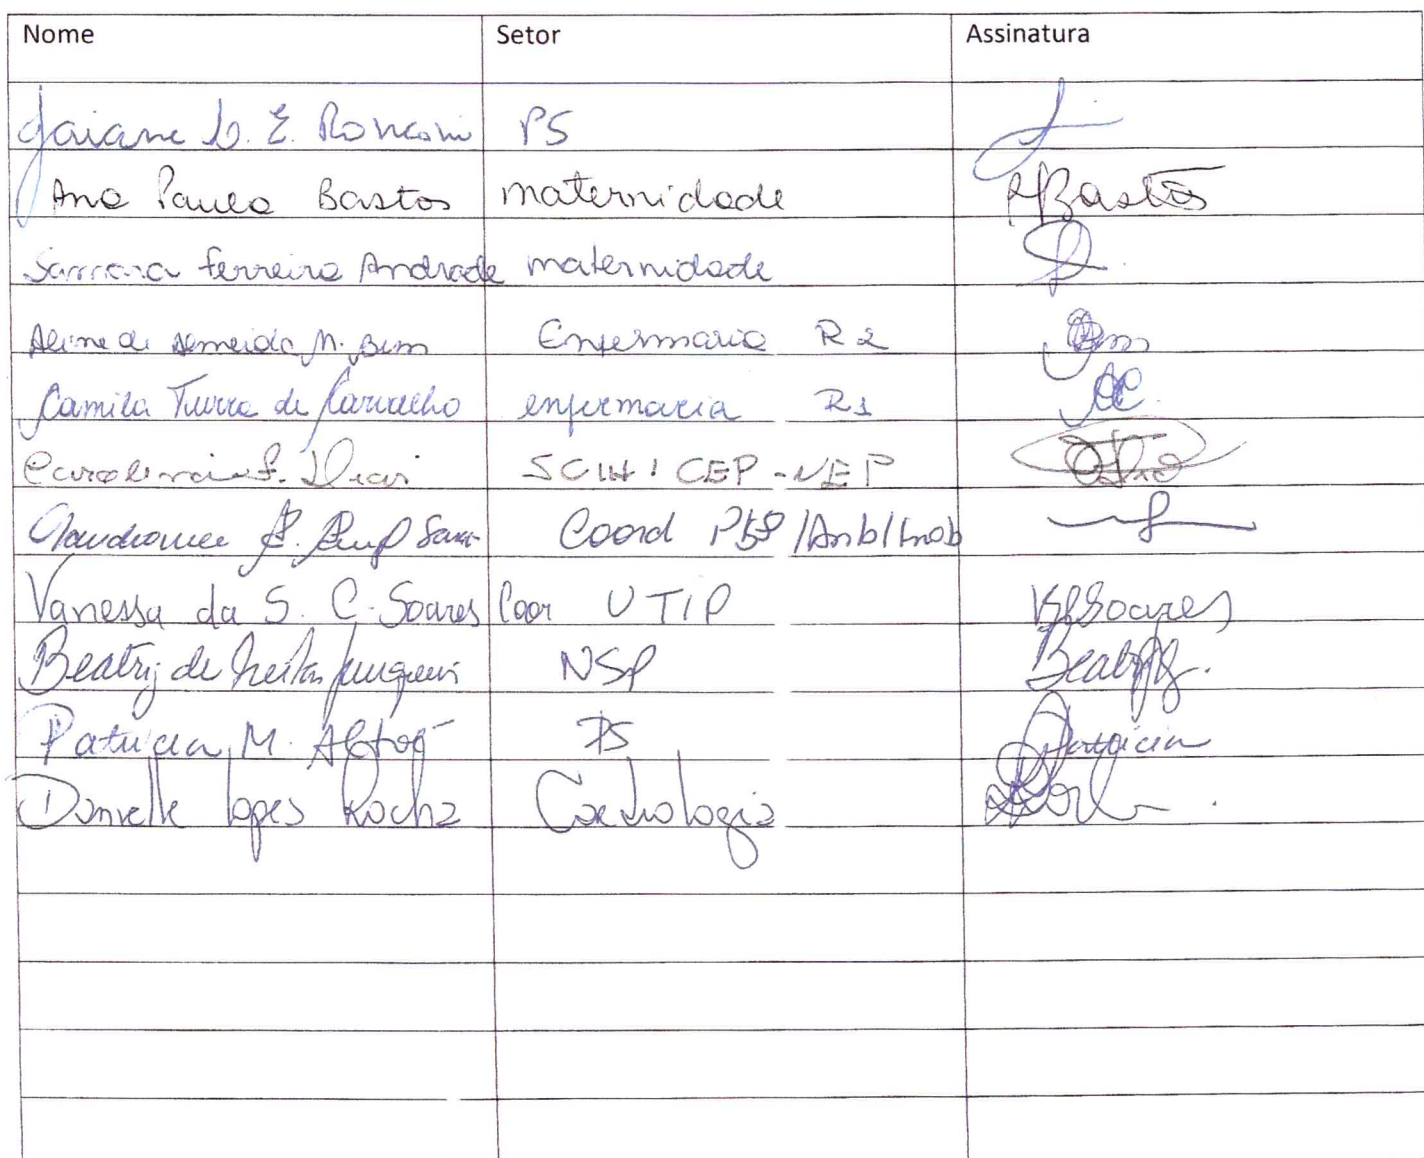 Nome Setor Assinatura
Jaiane L. E. Ronconi PS
Ana Paula Bastos maternidade Bastos
Samara Ferreira Andrade maternidade
Aline de Almeida M. Bim Enfermaria R2
Camila Turra de Carvalho enfermaria R1
Carolina F. Dias SCIH / CEP - NEP
Coord
Vanessa da S. C. Soares Coor UTIP Soares
Beatriz de Freitas Junqueira NSP
Patricia M. PS Patricia
Danielle Lopes Rocha Cardiologia